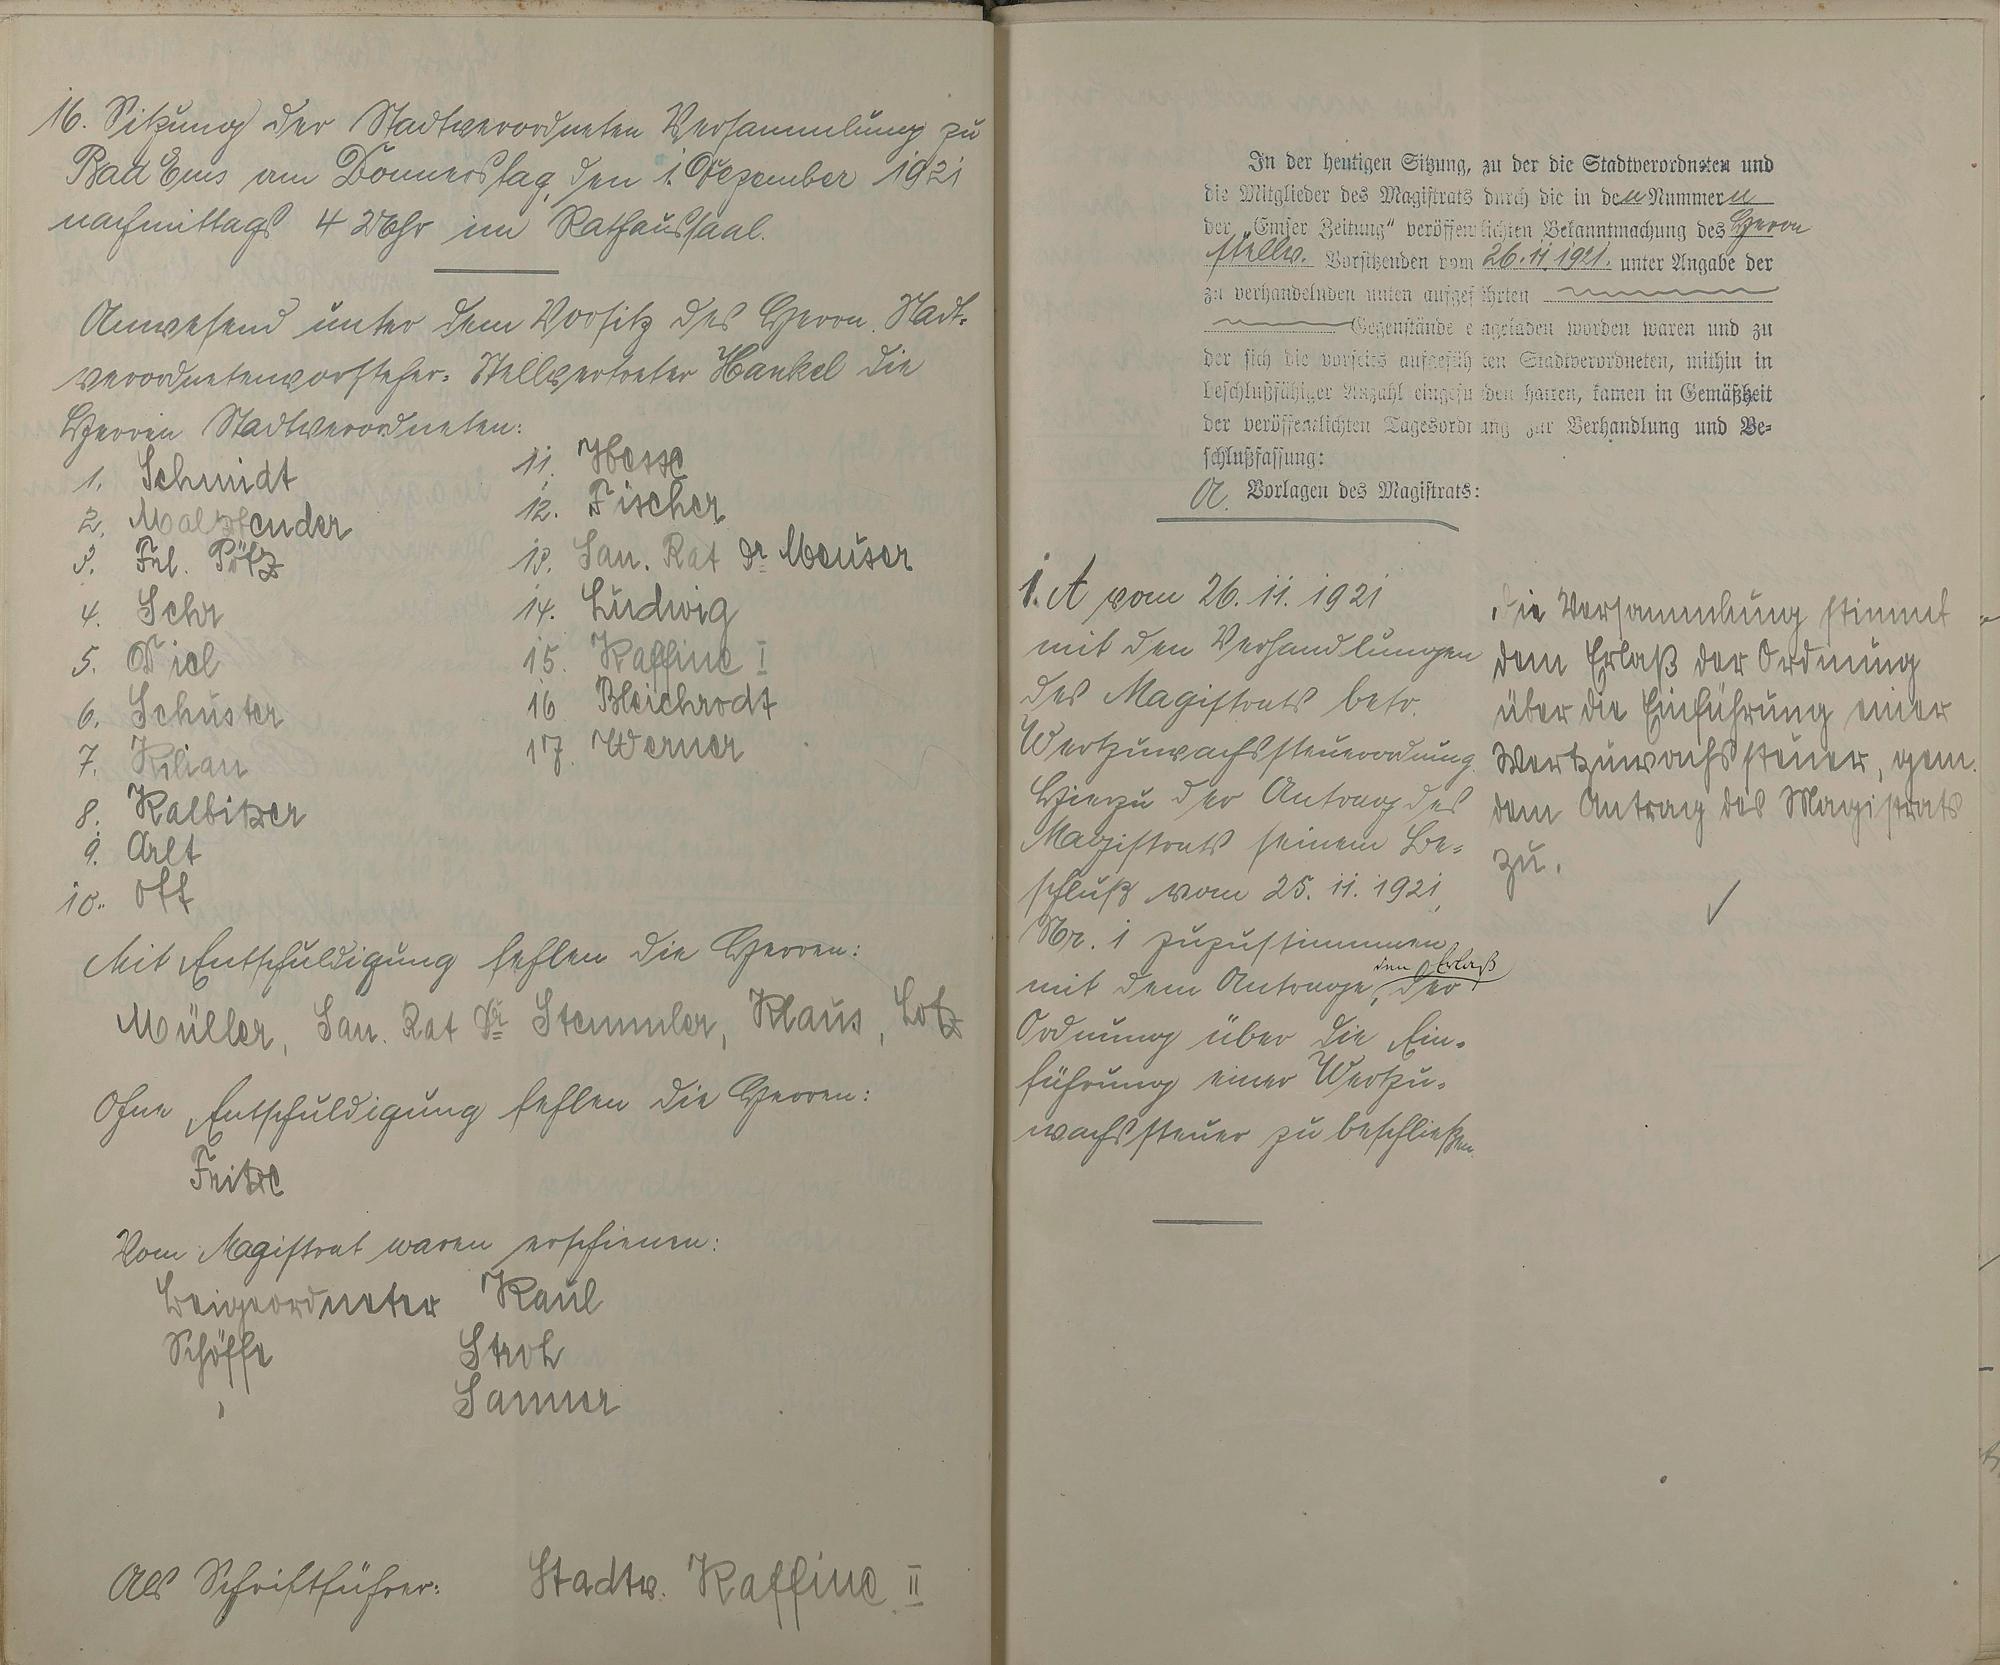 16. Sitzung der Stadtverordneten Versammlung zu
Bad Ems am Donnerstag, den 1. Dezember 1921
nachmittags 4 Uhr im Rathaussaal.
Anwesend unter dem Vorsitz des Herrn Stadt-
verordnetenvorsteher-Stellvertreter Hankel die
Herren Stadtverordneten:
1. Schmidt
2. Malzbender
3. Frl. Pötz
4. Sehr
5. Diel
6. Schuster
7. Kilian
8. Kalbitzer
9. Arlt
10. Ott
11. Hesse
12. Fischer
13. San. Rat Dr Meuser
14. Ludwig
15. Kaffine I
16 Bleichrodt
17. Werner
Mit Entschuldigung fehlen die Herren:
Müller, San. Rat Dr Stemmler, Klaus, Lotz
Ohne Entschuldigung fehlen die Herren:
Fritze
Vom Magistrat waren erschienen:
Beigeordneter Kaul
Schöffe Stroh
" Sanner
Als Schriftführer: Stadtv. Kaffine II
In der heutigen Sitzung, zu der die Stadtverordneten und
die Mitglieder des Magistrats durch die in den Nummern
der „Emser Zeitung" veröffentlichten Bekanntmachung des Herrn
stellv. Vorsitzenden vom 26.11.1921. unter Angabe der
zu verhandelnden unten aufgeführten
Gegenstände eingeladen worden waren und zu
der sich die vorseits aufgeführten Stadtverordneten, mithin in
beschlußfähiger Anzahl eingefunden hatten, kamen in Gemäßheit
der veröffentlichten Tagesordnung zur Verhandlung und Be-
schlußfassung:
A. Vorlagen des Magistrats:
1. A vom 26.11.1921
mit den Verhandlungen
des Magistrats betr.
Wertzuwachssteuerordnung.
Hierzu der Antrag des
Magistrats seinem Be-
schluß vom 25.11.1921,
Nr. 1 zuzustimmen
mit dem Antrage, den Erlaß der
Ordnung über die Ein-
führung einer Wertzu-
wachssteuer zu beschließen.
Die Versammlung stimmt
dem Erlaß der Ordnung
über die Einführung einer
Wertzuwachssteuer, gem.
dem Antrag des Magistrats
zu.